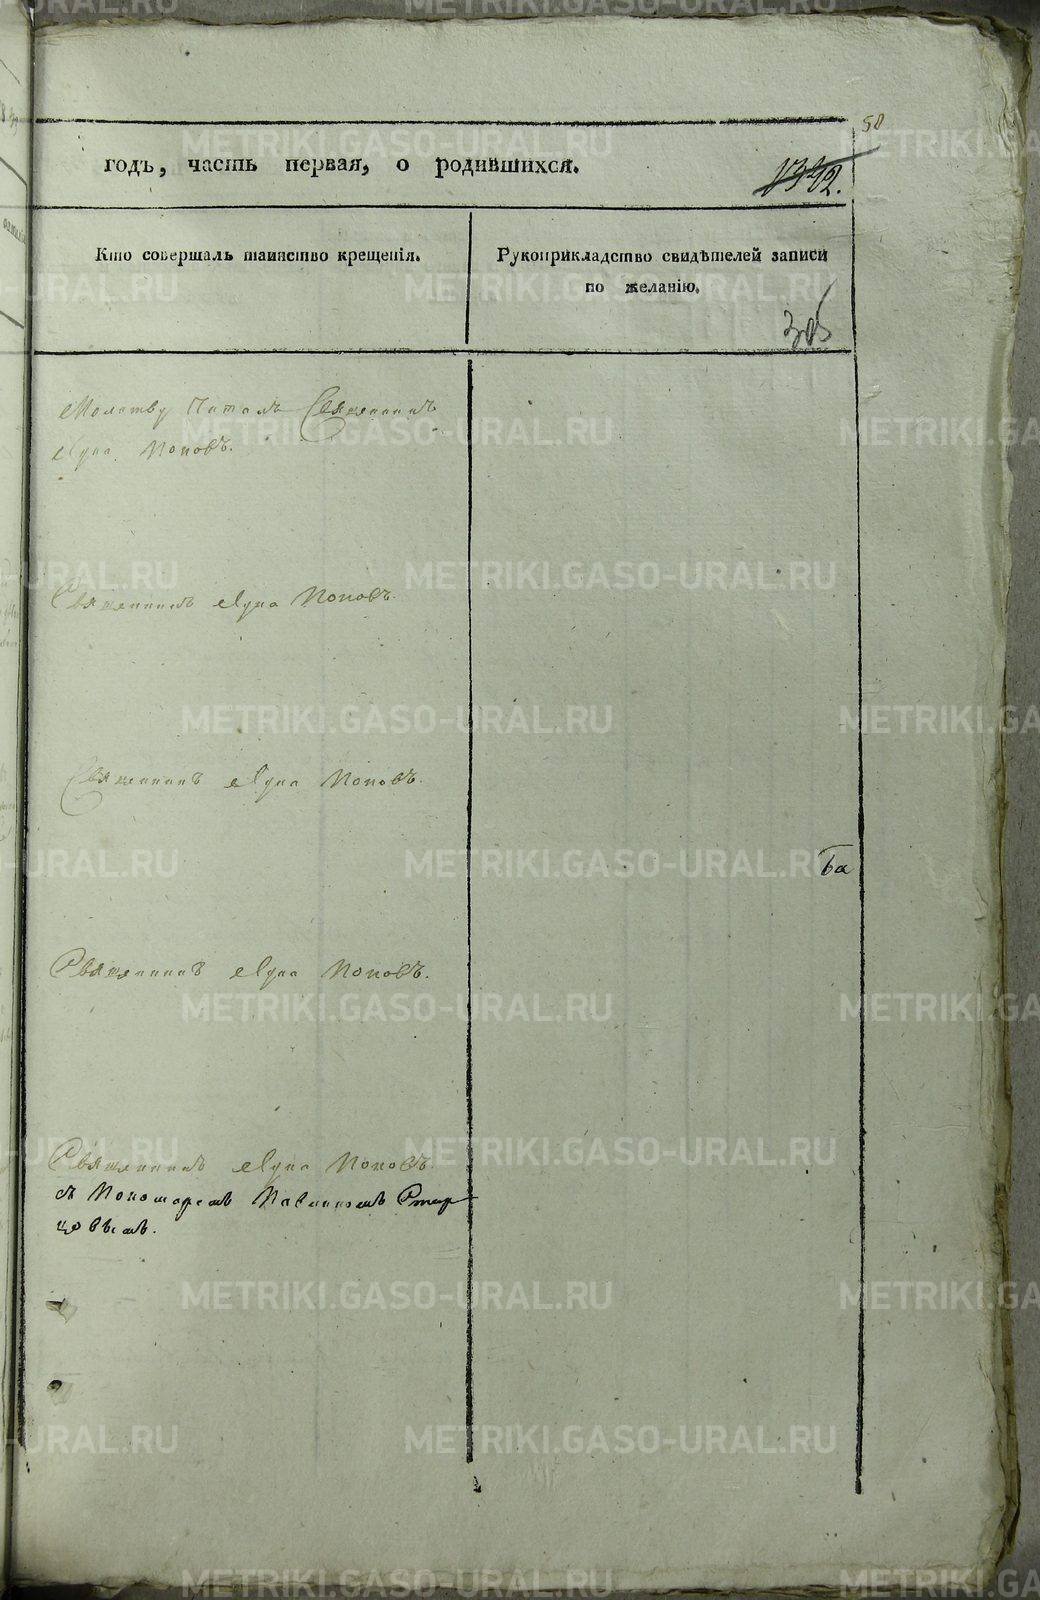 50
годъ, часть первая, о родившихся.
1342.
Кто совершалъ таинство крещенія.
Рукоприкладство свидѣтелей записи
по желанію.
305
Молитву Читалъ Священникъ
Лука Поповъ.
Священникъ Лука Поповъ.
Священникъ Лука Поповъ.
Священникъ Лука Поповъ.
Священникъ Лука Поповъ
съ Пономаремъ
METRIKI.GASO-URAL.RU